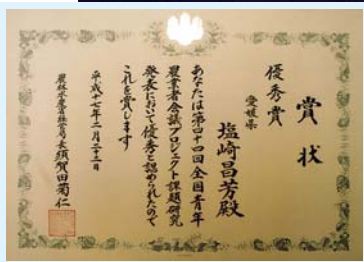 賞状
優秀賞
愛媛県
塩崎昌芳殿
あなたは第四十四回全国青年
農業者会議プロジェクト課題研究
発表において優秀と認められたので
これを賞します
平成十七年二月二十三日
農林水産省経営局長須賀田菊仁